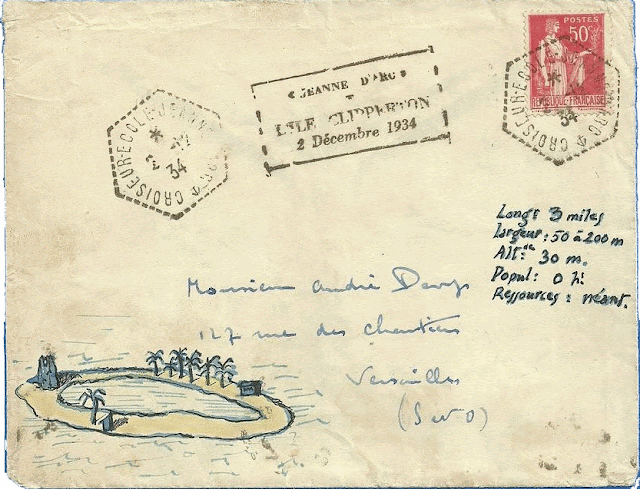 POSTES
50c
REPUBLIQUE-FRANÇAISE
« JEANNE D'ARC »
L'ILE CLIPPERTON
2 Décembre 1934
CROISEUR-ECOLE-JEANNE D'ARC
* 2 -12
34
CROISEUR-ECOLE-JEANNE D'ARC
*
34
Longr 3 miles
largeur : 50 à 200 m
Altde : 30 m.
Popul : 0 h.
Ressources : néant.
Monsieur André
127 rue des Chantiers
Versailles
(S et O)